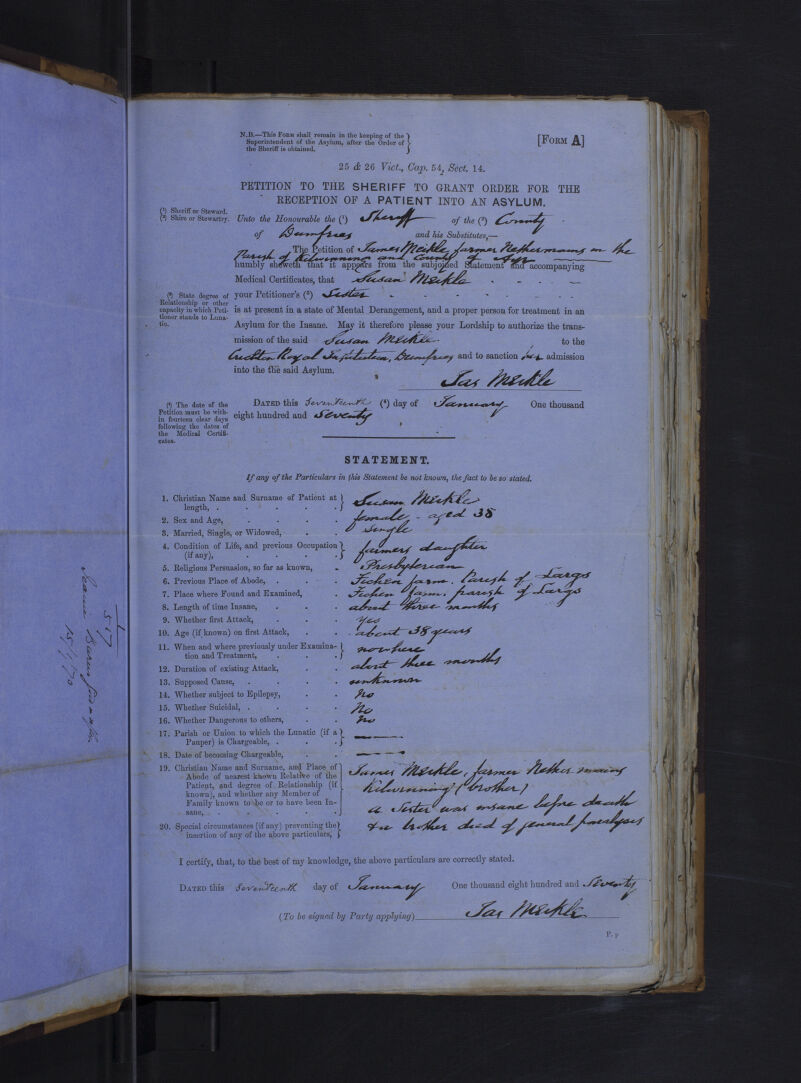 N.B.—This Form shall remain in the keeping of the
Superintendent of the Asylum, after the Order of
the Sheriff is obtained.
[Form A]
25 & 26 Vict., Cap. 54, Sect. 14.
PETITION TO THE SHERIFF TO GRANT ORDER FOR THE
RECEPTION OF A PATIENT INTO AN ASYLUM.
(¹) Sheriff or Steward.
(²) Shire or Stewartry.
Unto the Honourable the (¹) Sheriff of the (²) County
of Dumfries and his Substitutes,—
The Petition of James Meikle, farmer Nethermains in the
Parish of Kilwinning and County of Ayr
humbly sheweth that it appears from the subjoined Statement and accompanying
Medical Certificates, that Susan Meikle
(³) State degree of
Relationship or other
capacity in which Peti-
tioner stands to Luna-
tic.
your Petitioner's (³) Sister
is at present in a state of Mental Derangement, and a proper person for treatment in an
Asylum for the Insane. May it therefore please your Lordship to authorize the trans-
mission of the said Susan Meikle to the
Crichton Royal Institution, Dumfries and to sanction her admission
into the said Asylum.
Jas Meikle
(⁴) The date of the
Petition must be with-
in fourteen clear days
following the dates of
the Medical Certifi-
cates.
Dated this Seventeenth (⁴) day of January One thousand
eight hundred and Seventy
STATEMENT.
If any of the Particulars in this Statement be not known, the fact to be so stated.
1. Christian Name and Surname of Patient at
length, Susan Meikle
2. Sex and Age, female - aged 38
3. Married, Single, or Widowed, Single
4. Condition of Life, and previous Occupation
(if any), farmers daughter
5. Religious Persuasion, so far as known, Presbyterian
6. Previous Place of Abode, farm, Parish of Largs
7. Place where Found and Examined, farm, parish of Largs
8. Length of time Insane, about three months
9. Whether first Attack, yes
10. Age (if known) on first Attack, about 38 years
11. When and where previously under Examina-
tion and Treatment, nowhere
12. Duration of existing Attack, about three months
13. Supposed Cause, unknown
14. Whether subject to Epilepsy, No
15. Whether Suicidal, No
16. Whether Dangerous to others, No
17. Parish or Union to which the Lunatic (if a
Pauper) is Chargeable, —
18. Date of becoming Chargeable, —
19. Christian Name and Surname, and Place of
Abode of nearest known Relative of the
Patient, and degree of Relationship (if
known), and whether any Member of
Family known to be or to have been In-
sane,
James Meikle, farmer Nether mains
Kilwinning (brother)
a Sister was insane before death
20. Special circumstances (if any) preventing the
insertion of any of the above particulars,
brother died of general paralysis
I certify, that, to the best of my knowledge, the above particulars are correctly stated.
Dated this Seventeenth day of January One thousand eight hundred and Seventy
(To be signed by Party applying) Jas Meikle